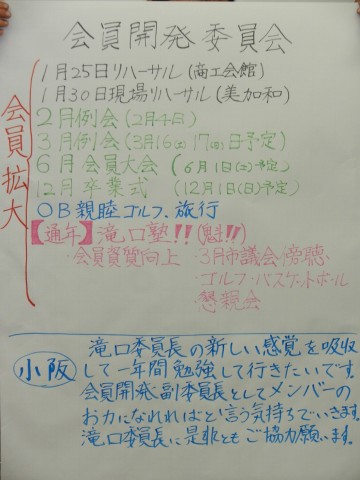 会員開発委員会
会員拡大
1月25日リハーサル(商工会館)
1月30日現場リハーサル(美加和)
2月例会(2月4日)
3月例会(3月16(土)17(日)日予定)
6月会員大会(6月1日(土)予定)
12月卒業式(12月1日(日)予定)
OB親睦ゴルフ.旅行
【通年】滝口塾!!(魁!!)
・会員資質向上 ・3月市議会傍聴
ゴルフ・バスケットボール
・懇親会
小阪
滝口委員長の新しい感覚を吸収
して一年間勉強して行きたいです。
会員開発副委員長としてメンバーの
お力になれればと言う気持ちでいきます。
滝口委員長に是非ともご協力願います。